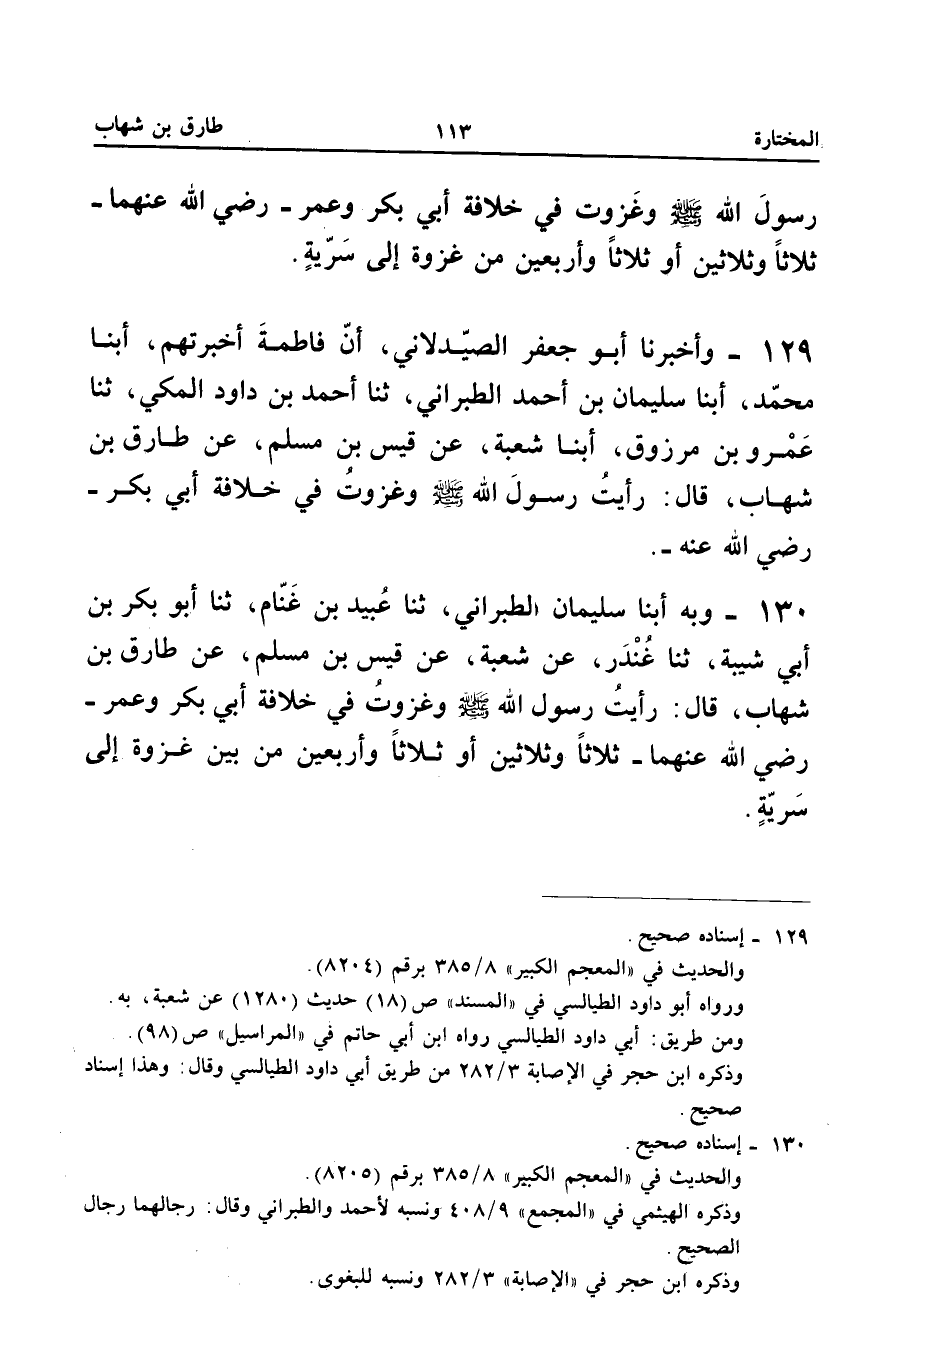 المختارة ١١٣ طارق بن شهاب
رسولَ الله ﷺ وغَزوت في خلافة أبي بكر وعمر ـ رضي الله عنهما ـ
ثلاثاً وثلاثين أو ثلاثاً وأربعين من غزوة إلى سَرّيةٍ.
١٢٩ ـ وأخبرنا أبو جعفر الصيّدلاني، أنّ فاطمةَ أخبرتهم، أبنا
محمّد، أبنا سليمان بن أحمد الطبراني، ثنا أحمد بن داود المكي، ثنا
عَمْرو بن مرزوق، أبنا شعبة، عن قيس بن مسلم، عن طارق بن
شهاب، قال: رأيتُ رسولَ الله ﷺ وغزوتُ في خلافة أبي بكر ـ
رضي الله عنه ـ.
١٣٠ ـ وبه أبنا سليمان الطبراني، ثنا عُبيد بن غَنّام، ثنا أبو بكر بن
أبي شيبة، ثنا غُنْدَر، عن شعبة، عن قيس بن مسلم، عن طارق بن
شهاب، قال: رأيتُ رسول الله ﷺ وغزوتُ في خلافة أبي بكر وعمر ـ
رضي الله عنهما ـ ثلاثاً وثلاثين أو ثلاثاً وأربعين من بين غزوة إلى
سَريّةٍ.
١٢٩ ـ إسناده صحيح.
والحديث في «المعجم الكبير» ٣٨٥/٨ برقم (٨٢٠٤).
ورواه أبو داود الطيالسي في «المسند» ص (١٨) حديث (١٢٨٠) عن شعبة، به.
ومن طريق: أبي داود الطيالسي رواه ابن أبي حاتم في «المراسيل» ص (٩٨).
وذكره ابن حجر في الإصابة ٢٨٢/٣ من طريق أبي داود الطيالسي وقال: وهذا إسناد
صحيح.
١٣٠ ـ إسناده صحيح.
والحديث في «المعجم الكبير» ٣٨٥/٨ برقم (٨٢٠٥).
وذكره الهيثمي في «المجمع» ٤٠٨/٩ ونسبه لأحمد والطبراني وقال: رجالهما رجال
الصحيح.
وذكره ابن حجر في «الإصابة» ٢٨٢/٣ ونسبه للبغوى.